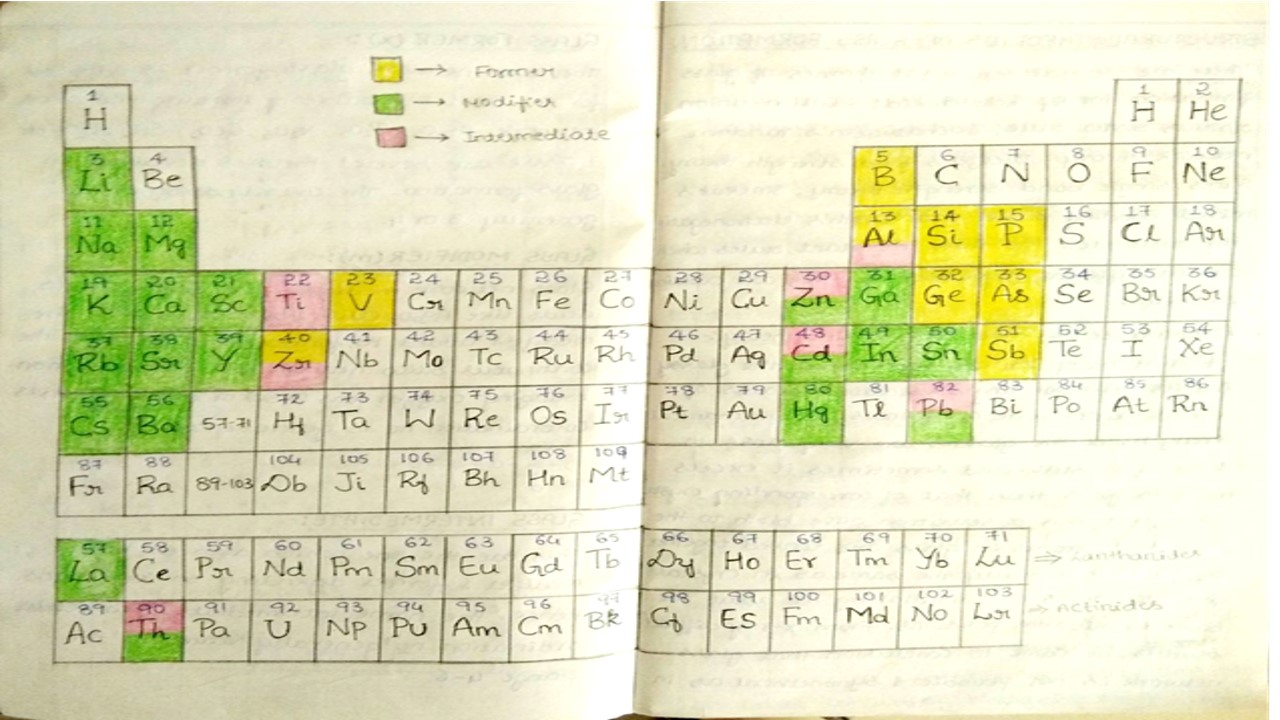 → Former
→ Modifier
→ Intermediate
1 1 2
H H He
3 4 5 6 7 8 9 10
Li Be B C N O F Ne
11 12 13 14 15 16 17 18
Na Mg Al Si P S Cl Ar
19 20 21 22 23 24 25 26 27 28 29 30 31 32 33 34 35 36
K Ca Sc Ti V Cr Mn Fe Co Ni Cu Zn Ga Ge As Se Br Kr
37 38 39 40 41 42 43 44 45 46 47 48 49 50 51 52 53 54
Rb Sr Y Zr Nb Mo Tc Ru Rh Pd Ag Cd In Sn Sb Te I Xe
55 56 72 73 74 75 76 77 78 79 80 81 82 83 84 85 86
Cs Ba 57-71 Hf Ta W Re Os Ir Pt Au Hg Tl Pb Bi Po At Rn
87 88 104 105 106 107 108 109
Fr Ra 89-103 Db Ji Rf Bh Hn Mt
57 58 59 60 61 62 63 64 65 66 67 68 69 70 71
La Ce Pr Nd Pm Sm Eu Gd Tb Dy Ho Er Tm Yb Lu ⇒ Lanthanides
89 90 91 92 93 94 95 96 97 98 99 100 101 102 103
Ac Th Pa U NP PU Am Cm BK Cf ES Fm Md No Lr ⇒ Actinides